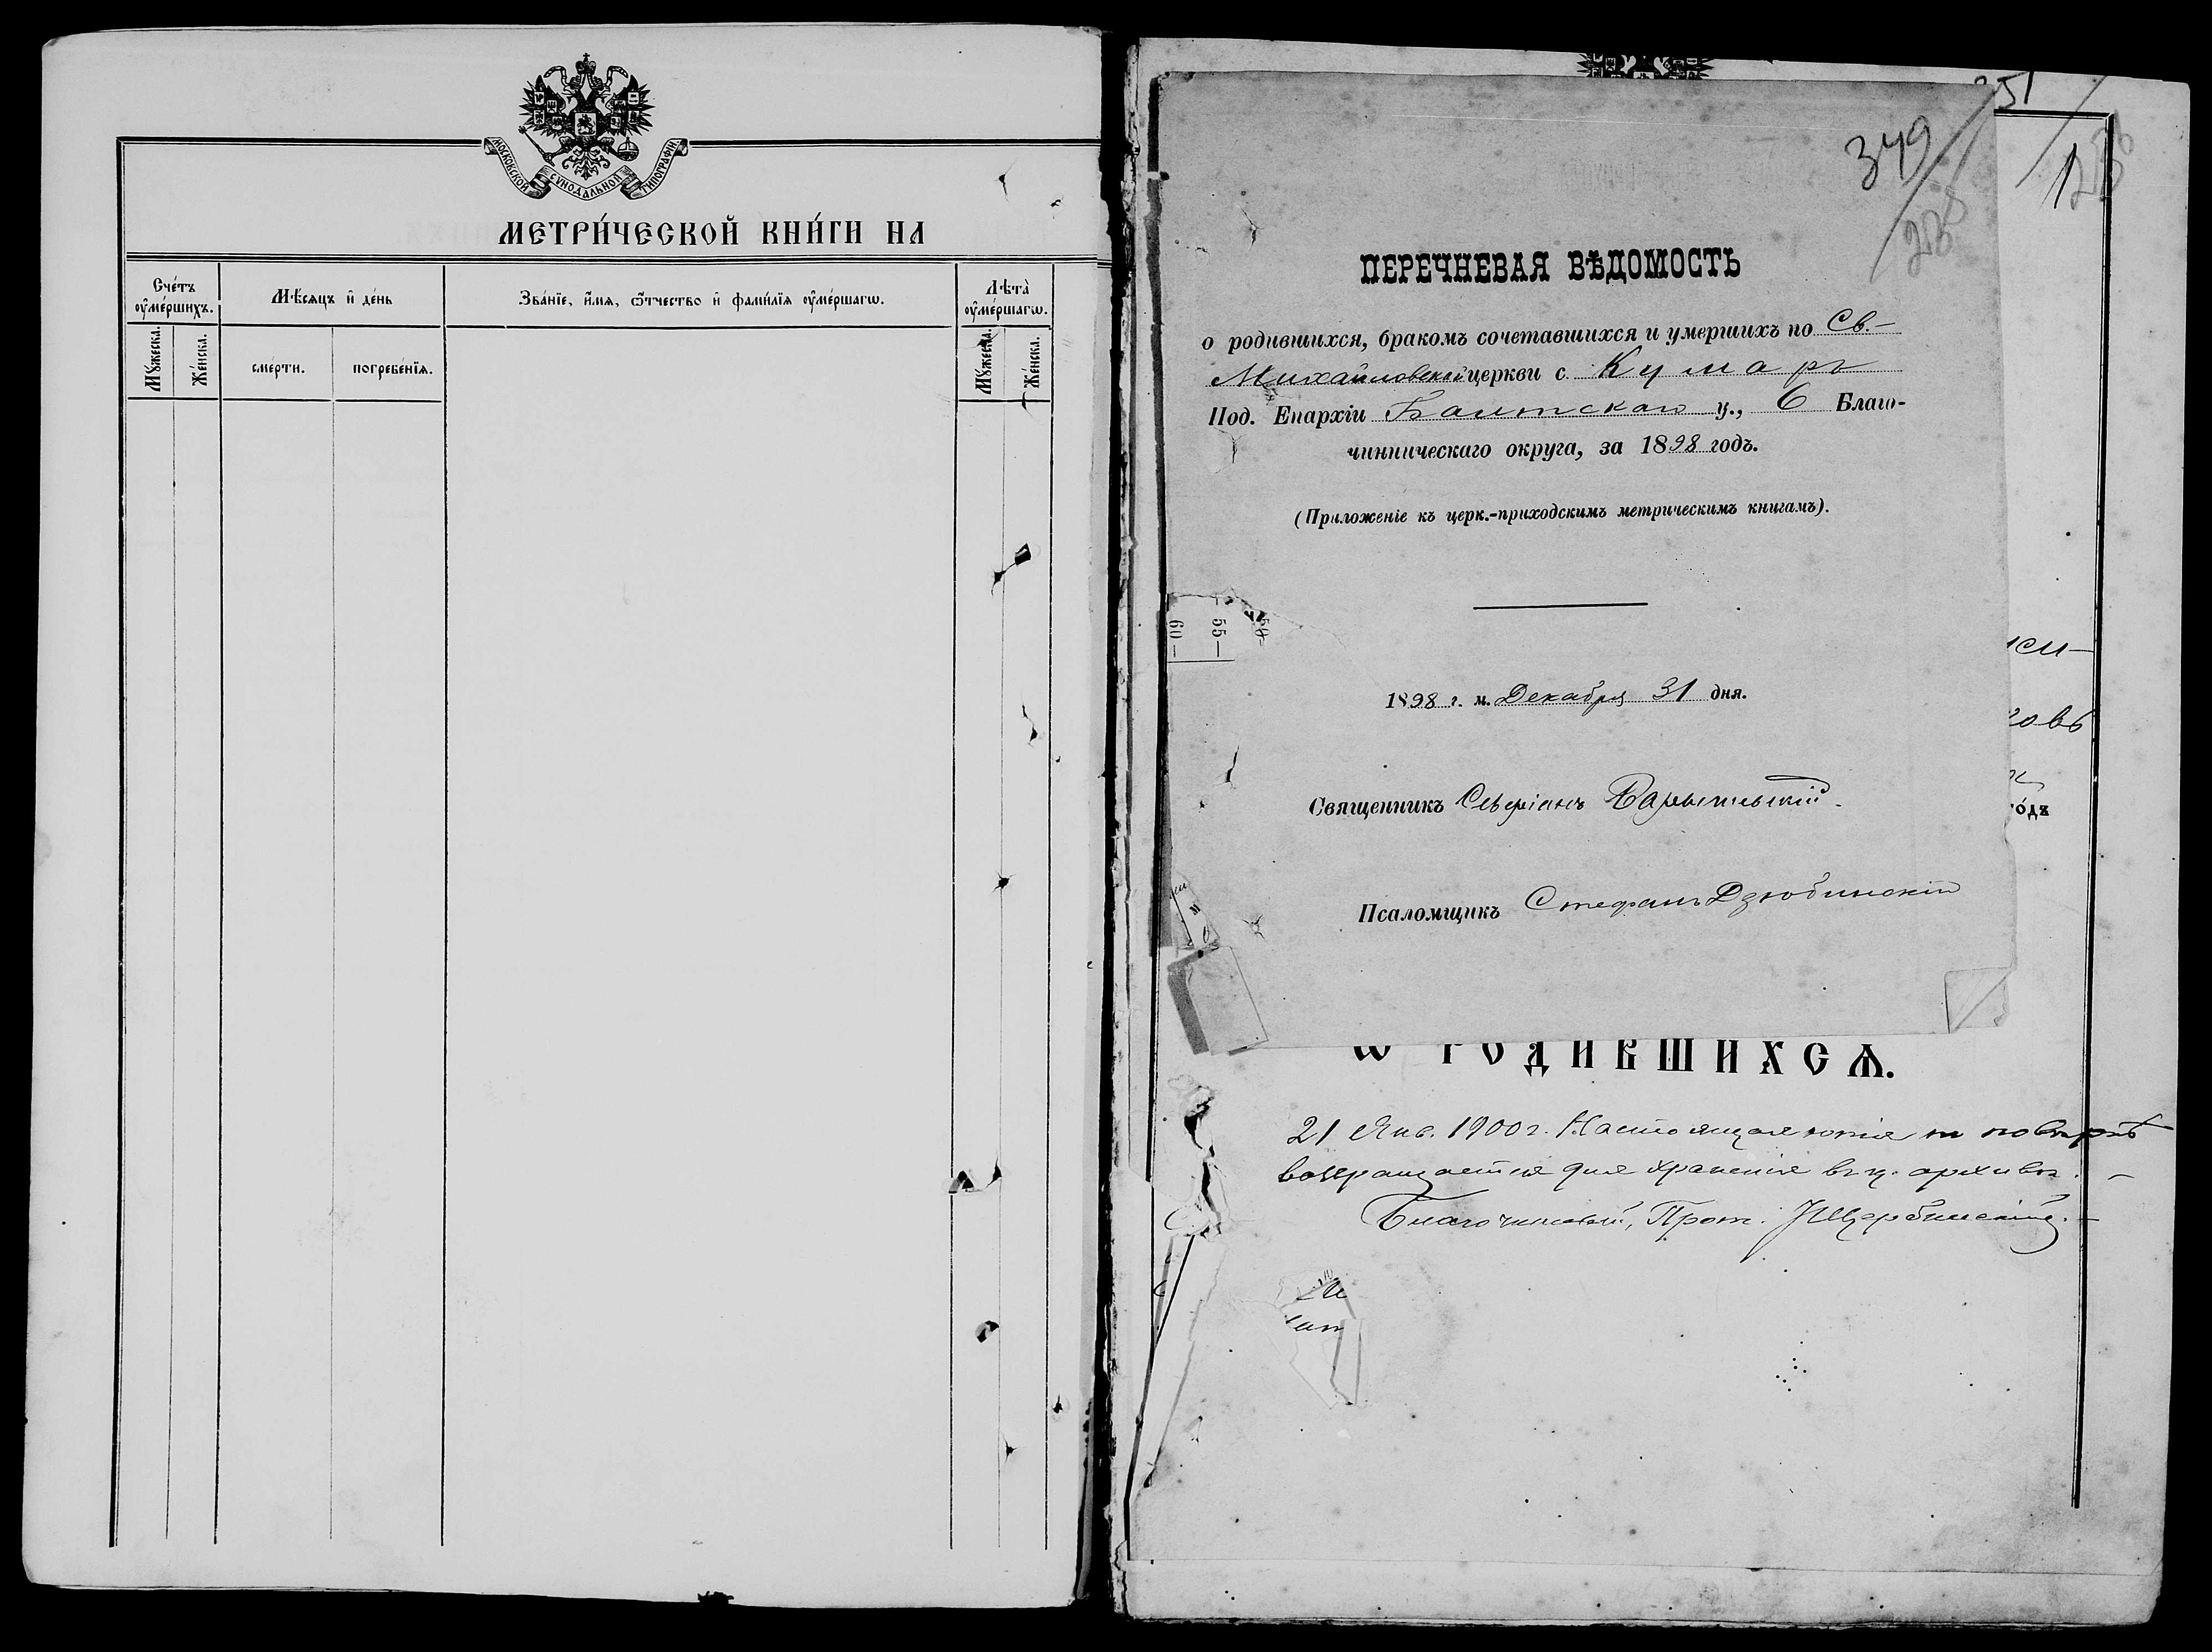 МОСКОВСКОЙ СѴНОДАЛЬНОЙ ТИПОГРАФІИ
МЕТРИ́ЧЕСКОЙ КНИ́ГИ НА
Сче́тъ оу҆ме́ршихъ.
Мѣ́сяцъ и҆ де́нь
Зва́нїе, и҆́мѧ, ѻ҆́тчество и҆ фами́лїѧ оу҆ме́ршагѡ.
Лѣта̀ оу҆ме́ршагѡ.
Мꙋ́жеска.
Же́нска.
сме́рти.
погребе́нїѧ.
Мꙋ́жеска.
Же́нска.
351
349
1
ПЕРЕЧНЕВАЯ ВѢДОМОСТЬ
о родившихся, бракомъ сочетавшихся и умершихъ по Св.-
Михайловской церкви с. Кумаръ
Под. Епархіи Балтскаго у., 6 Благо-
чинническаго округа, за 1898 годъ.
(Приложеніе къ церк.-приходскимъ метрическимъ книгамъ).
50—
55—
60—
1898 г. м. Декабря 31 дня.
го́дъ
Священникъ
Псаломщикъ Стефанъ Дзюбинскій
Ѡ РОДИВШИХСѦ.
21 Янв. 1900 г. Настоящая копія по повѣркѣ
возвращается для храненія въ ц. архивѣ. —
Благочинный, Прот. Щербинскій. —